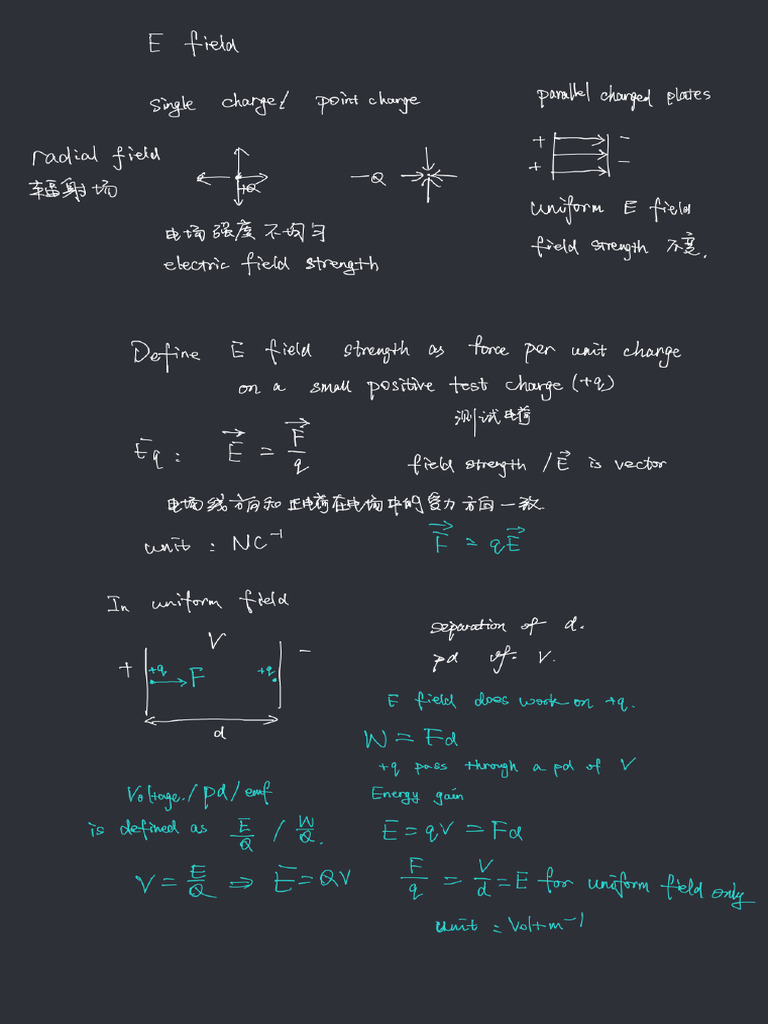 E field
single charge / point charge
parallel charged plates
radial field
辐射场
+Q
-Q
+ -
+ -
uniform E field
field strength 不变.
电场强度不均匀
electric field strength
Define E field strength as force per unit charge
on a small positive test charge (+q)
测试电荷
Eq : \vec{E} = \frac{\vec{F}}{q}
field strength / \vec{E} is vector
电场线方向和正电荷在电场中的受力方向一致.
unit : NC^{-1}
\vec{F} = q\vec{E}
In uniform field
V
+ -
+q F +q
d
separation of d.
pd of V.
E field does work on +q.
W = Fd
+q pass through a pd of V
Energy gain
E = qV = Fd
\frac{F}{q} = \frac{V}{d} = E for uniform field only
unit = Volt m^{-1}
Voltage / pd / emf
is defined as \frac{E}{Q} / \frac{W}{Q}.
V = \frac{E}{Q} ⇒ E = QV